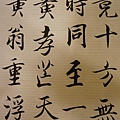 竟十方無
時同至一
黄孝天
黄翁重浮